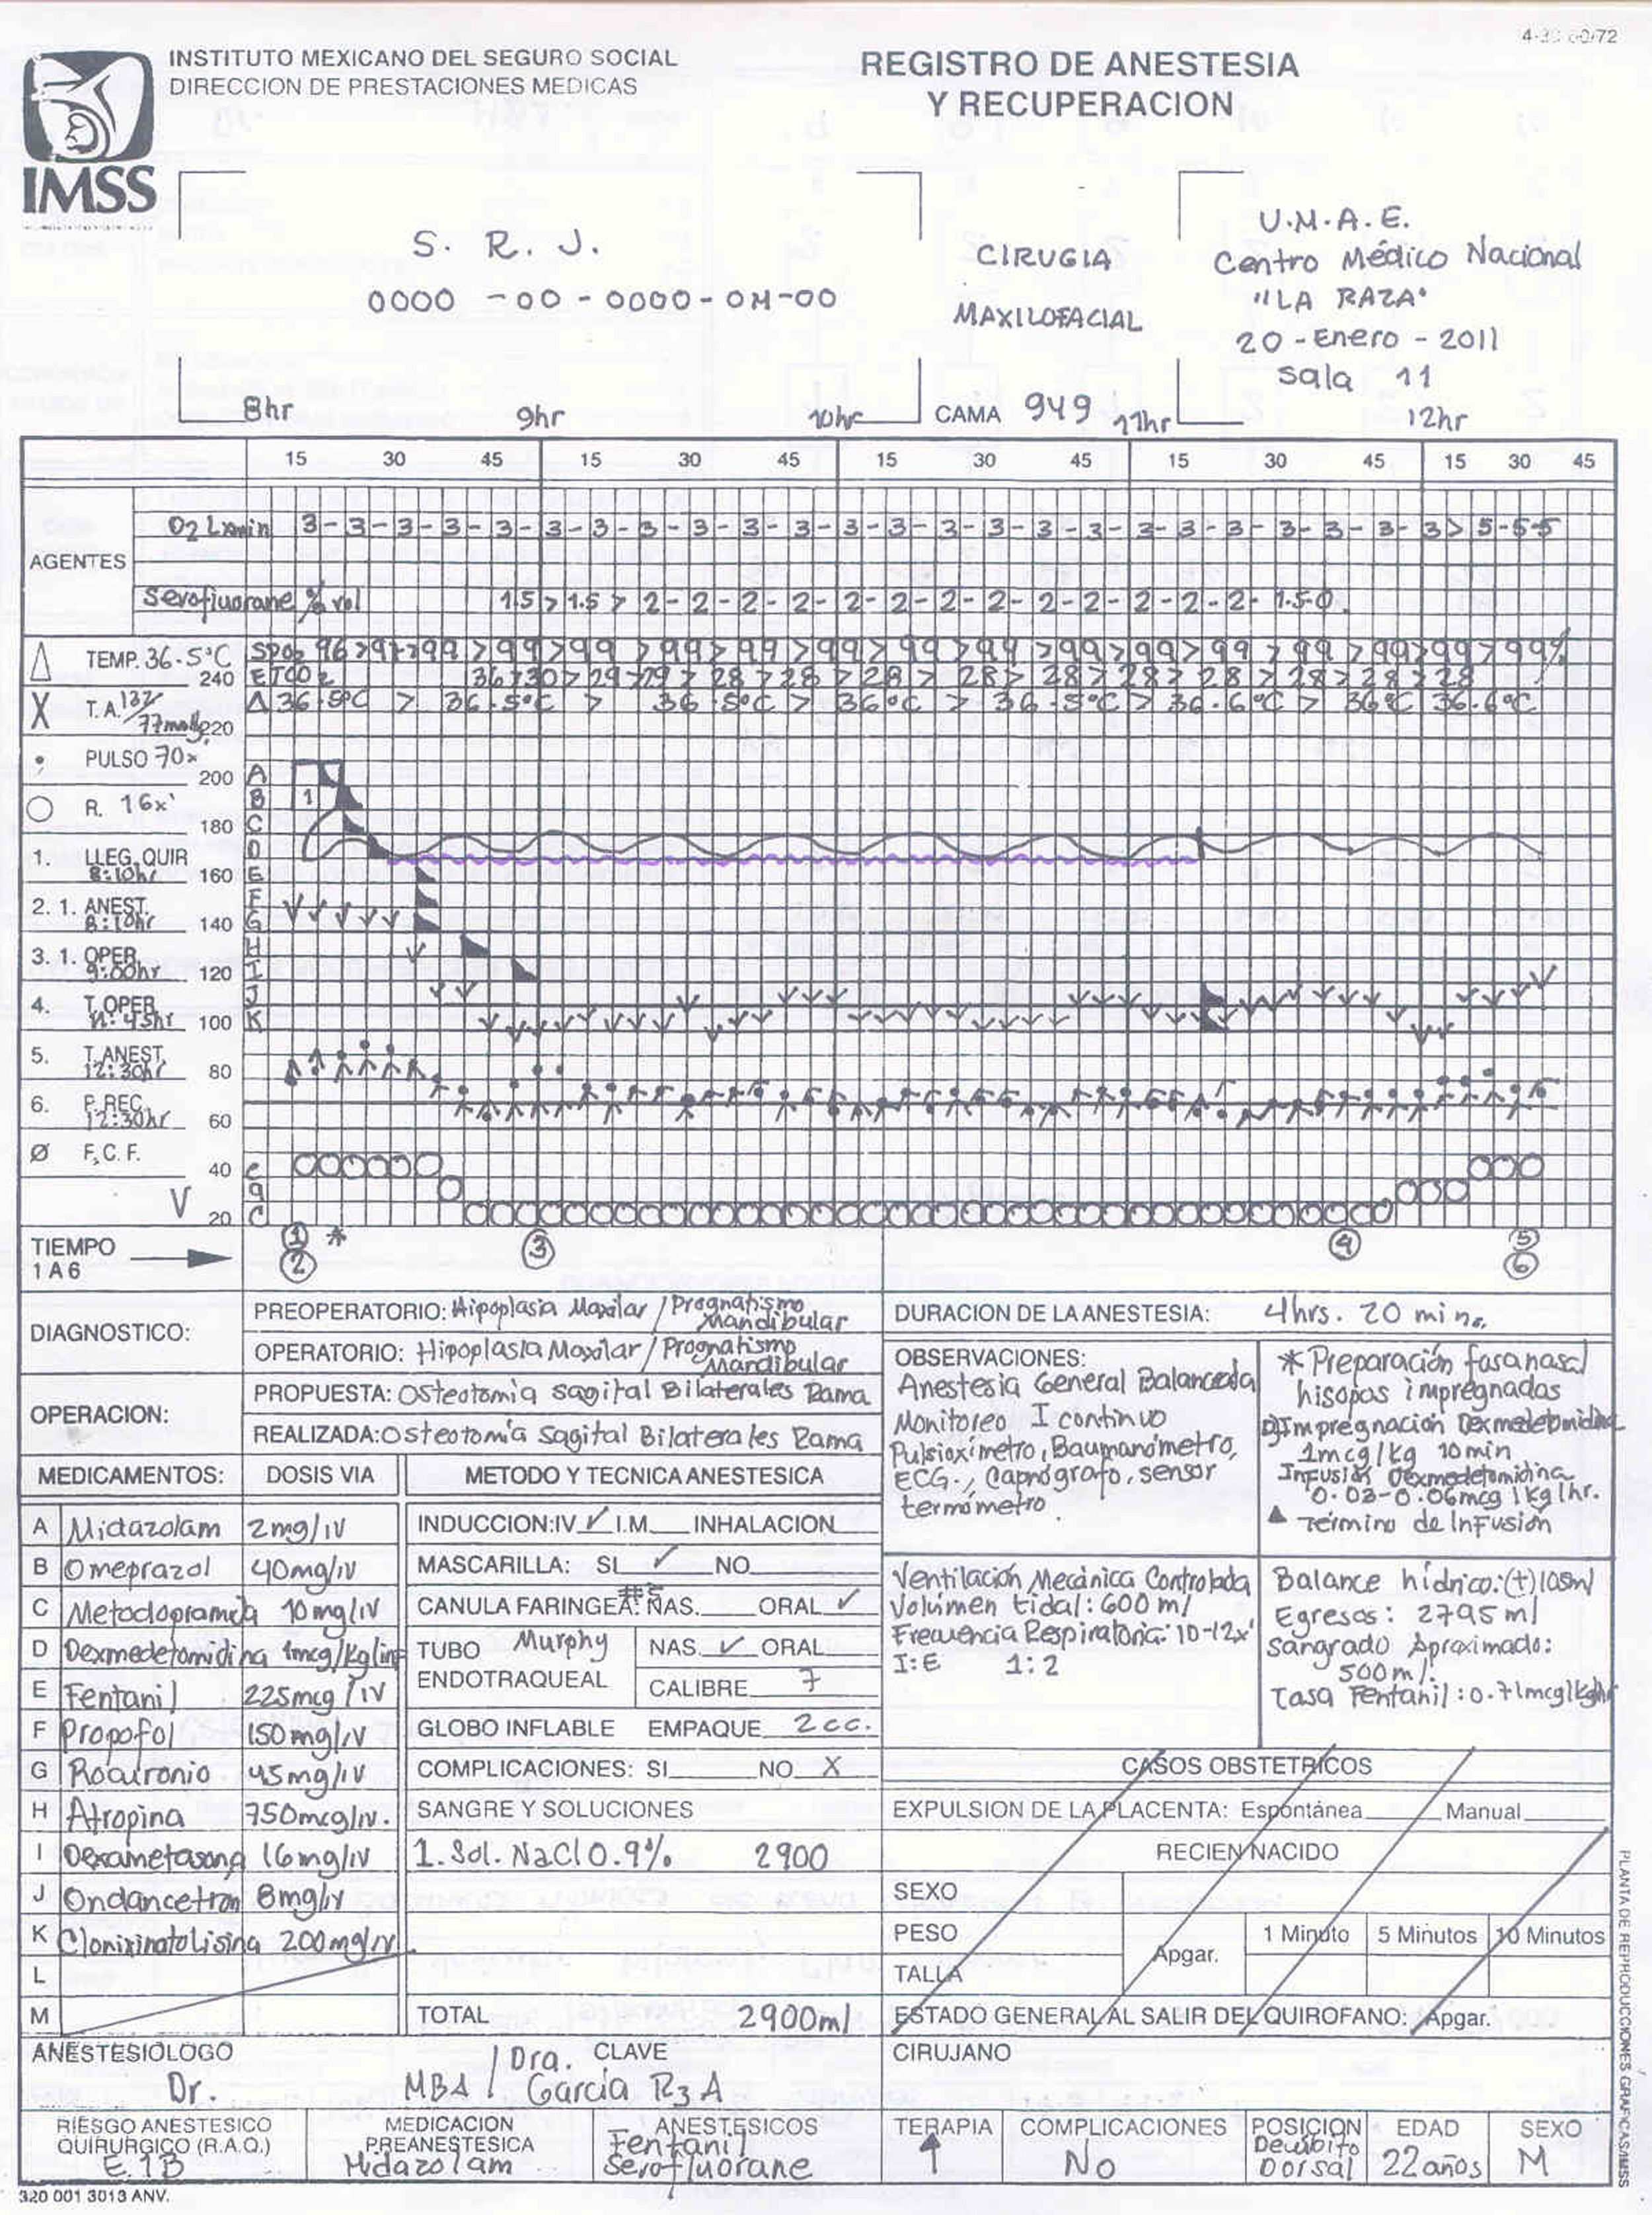 INSTITUTO MEXICANO DEL SEGURO SOCIAL
DIRECCION DE PRESTACIONES MEDICAS
IMSS
REGISTRO DE ANESTESIA
Y RECUPERACION
S. R. J.
0000 - 00 - 0000 - 0M - 00
CIRUGIA
MAXILOFACIAL
U.M.A.E.
Centro Médico Nacional
"LA RAZA"
20 - Enero - 2011
Sala 11
8hr 9hr 10hr CAMA 949 11hr 12hr
15 30 45 15 30 45 15 30 45 15 30 45 15 30 45
AGENTES
O2 Lxmin 3-3-3-3-3-3-3-3-3-3-3-3-3-3-3-3-3-3-3-3-3-3-3-3> 5-5-5
Sevofluorane % vol 1.5 > 1.5 > 2-2-2-2-2-2-2-2-2-2-2-2-2- 1.5-0.
TEMP. 36.5°C
SPO2 96 >97>99 >99>99 >99>99>99>99>99>99>99>99>99 >99 >99>99>99%
240 ETCO2 36>30>29>29>28>28>28>28>28>28>28>28>28>28
X T.A. 137/77mmHg 220
Δ36.5°C > 36.5°C > 36.5°C > 36°C > 36.5°C > 36.6°C > 36°C 36.6°C
PULSO 70x
200 A
R. 16x'
B 1
180 C
D
1. LLEG. QUIR 8:10hr
160 E
F
2. 1. ANEST. 8:10hr
140 G
H
3. 1. OPER. 9:00hr
120 I
J
4. T. OPER 11:45hr
100 K
5. T. ANEST. 12:30hr
80
6. P. REC. 12:30hr
60
Ø F.C.F.
40
V
20
TIEMPO
1 A 6
1 2 * 3 4 5 6
DIAGNOSTICO:
PREOPERATORIO: Hipoplasia Maxilar / Prognatismo Mandibular
OPERATORIO: Hipoplasia Maxilar / Prognatismo Mandibular
OPERACION:
PROPUESTA: Osteotomia sagital Bilaterales Rama
REALIZADA: Osteotomía Sagital Bilaterales Rama
DURACION DE LA ANESTESIA: 4hrs. 20 min.
OBSERVACIONES:
Anestesia General Balanceada
Monitoreo I continuo
Pulsioxímetro, Baumanómetro,
ECG., Capnógrafo, sensor
termómetro.
* Preparación fosa nasal
hisopos impregnados
D) Impregnación Dexmedetomidina
1mcg/kg 10min
Infusión Dexmedetomidina
0.03-0.06mcg/kg/hr.
▲ Término de Infusión
Ventilación Mecánica Controlada
Volúmen tidal: 600 ml
Frecuencia Respiratoria: 10-12x'
I:E 1:2
Balance hídrico: (+) 105ml
Egresos: 2795 ml
Sangrado Aproximado:
500ml.
Tasa Fentanil: 0.71mcg/kg/hr
MEDICAMENTOS: DOSIS VIA
A Midazolam 2mg/IV
B Omeprazol 40mg/IV
C Metoclopramida 10mg/IV
D Dexmedetomidina 1mcg/kg/inf
E Fentanil 225mcg/IV
F Propofol 150mg/IV
G Rocuronio 45mg/IV
H Atropina 750mcg/IV.
I Dexametasona 16mg/IV
J Ondancetron 8mg/IV
K Clonixinato Lisina 200mg/IV
L
M
METODO Y TECNICA ANESTESICA
INDUCCION: IV ✓ I.M. INHALACION
MASCARILLA: SI ✓ NO
CANULA FARINGEA: #5 NAS. ORAL ✓
TUBO Murphy NAS. ✓ ORAL
ENDOTRAQUEAL CALIBRE 7
GLOBO INFLABLE EMPAQUE 2cc.
COMPLICACIONES: SI NO X
SANGRE Y SOLUCIONES
1. Sol. NaCl 0.9% 2900
TOTAL 2900ml
CASOS OBSTETRICOS
EXPULSION DE LA PLACENTA: Espontánea Manual
RECIEN NACIDO
SEXO
PESO
TALLA
Apgar.
1 Minuto 5 Minutos 10 Minutos
ESTADO GENERAL AL SALIR DEL QUIROFANO: Apgar.
ANESTESIOLOGO CLAVE CIRUJANO
Dr. MBA / Dra. García R3A
RIESGO ANESTESICO QUIRURGICO (R.A.Q.)
E 1 B
MEDICACION PREANESTESICA
Midazolam
ANESTESICOS
Fentanil
Sevofluorane
TERAPIA
↑
COMPLICACIONES
No
POSICION
Decúbito
Dorsal
EDAD
22 años
SEXO
M
320 001 3013 ANV.
PLANTA DE REPRODUCCIONES GRAFICAS/IMSS